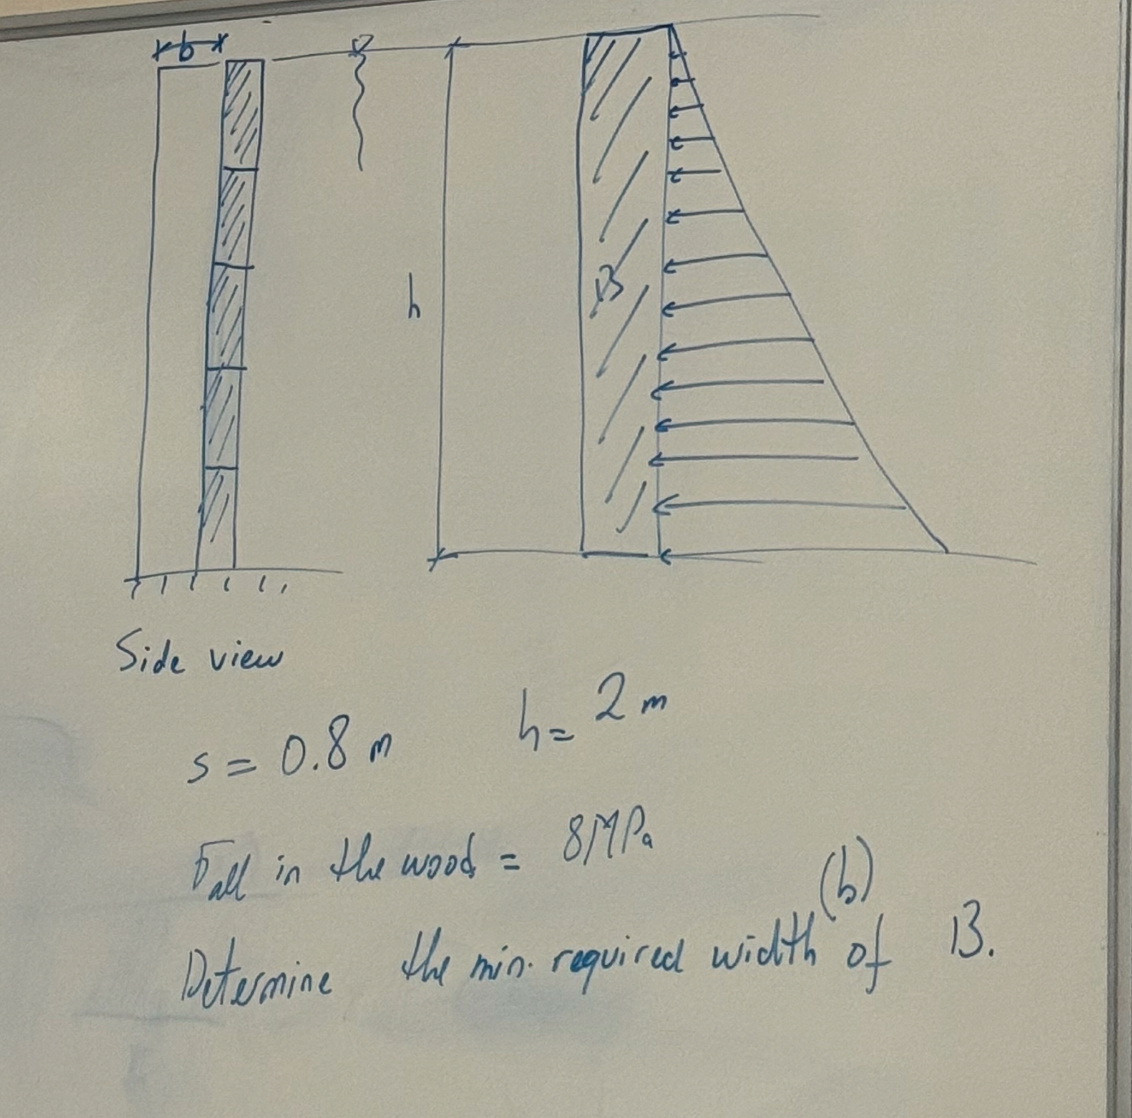 b
h
B
Side view
s = 0.8 m
h = 2 m
σall in the wood = 8MPa
(b)
Determine the min. required width of B.